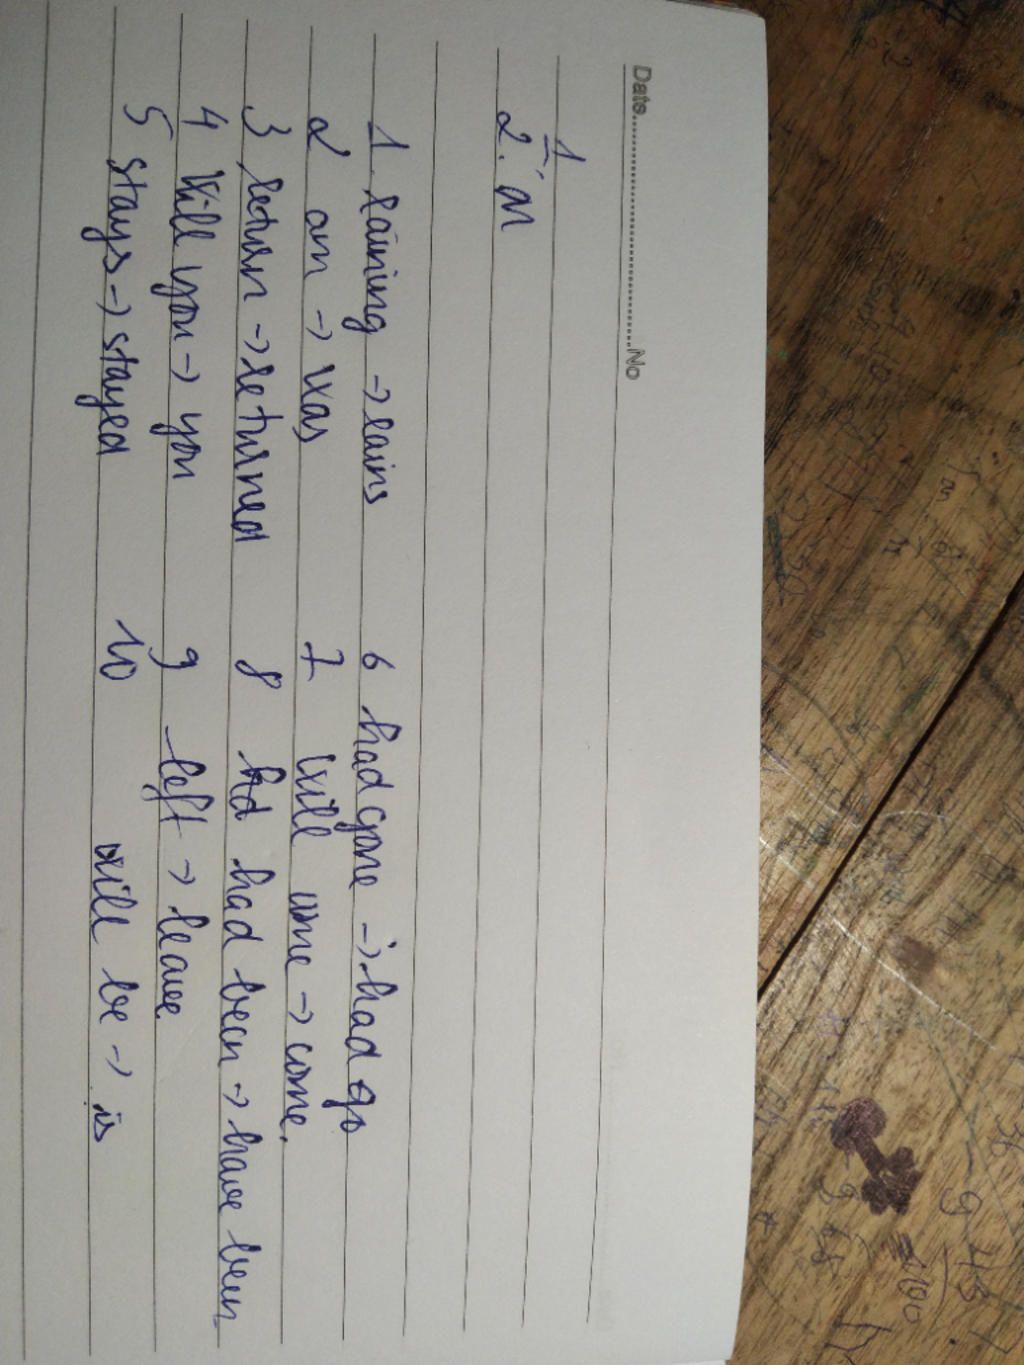 Date..............................No
1
2. M
1. raining -> rains 6 had gone -> had go
2 am -> was 7 will come -> come.
3 return -> returned 8 hd had been -> have been
4 will you -> you 9 left -> leave
5 stays -> stayed 10 will be -> is